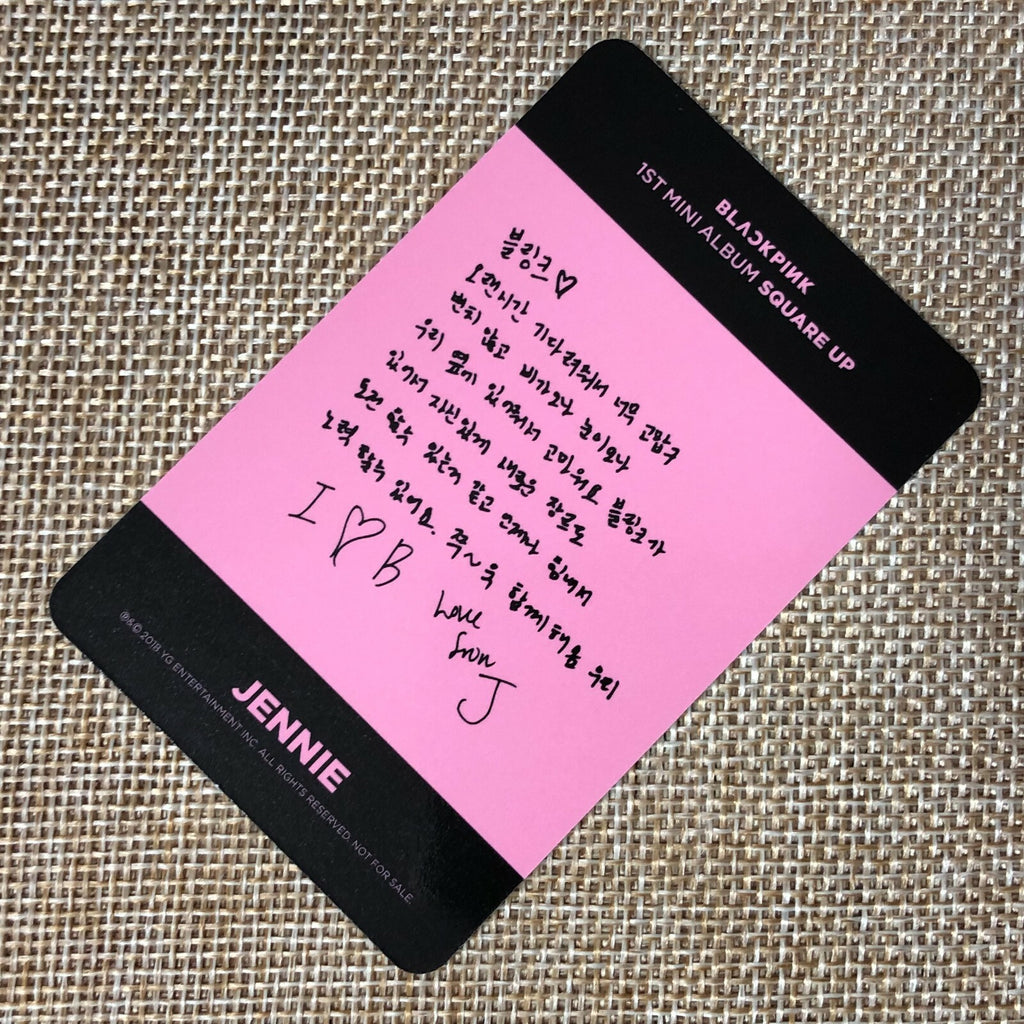 BLACKPINK
1ST MINI ALBUM SQUARE UP
블링크♡
오랜시간 기다려줘서 너무 고맙구
변치 않고 비가오나 눈이오나
우리 곁에 있어줘서 고마워요 블링크가
있기에 자신있게 새로운 장르도
도전 할수 있는거 같고 언제나 힘내서
노력 할수 있어요. 쭈~욱 함께해욤 우리
I ♡ B
Love
from
J
JENNIE
℗&© 2018 YG ENTERTAINMENT INC. ALL RIGHTS RESERVED. NOT FOR SALE.